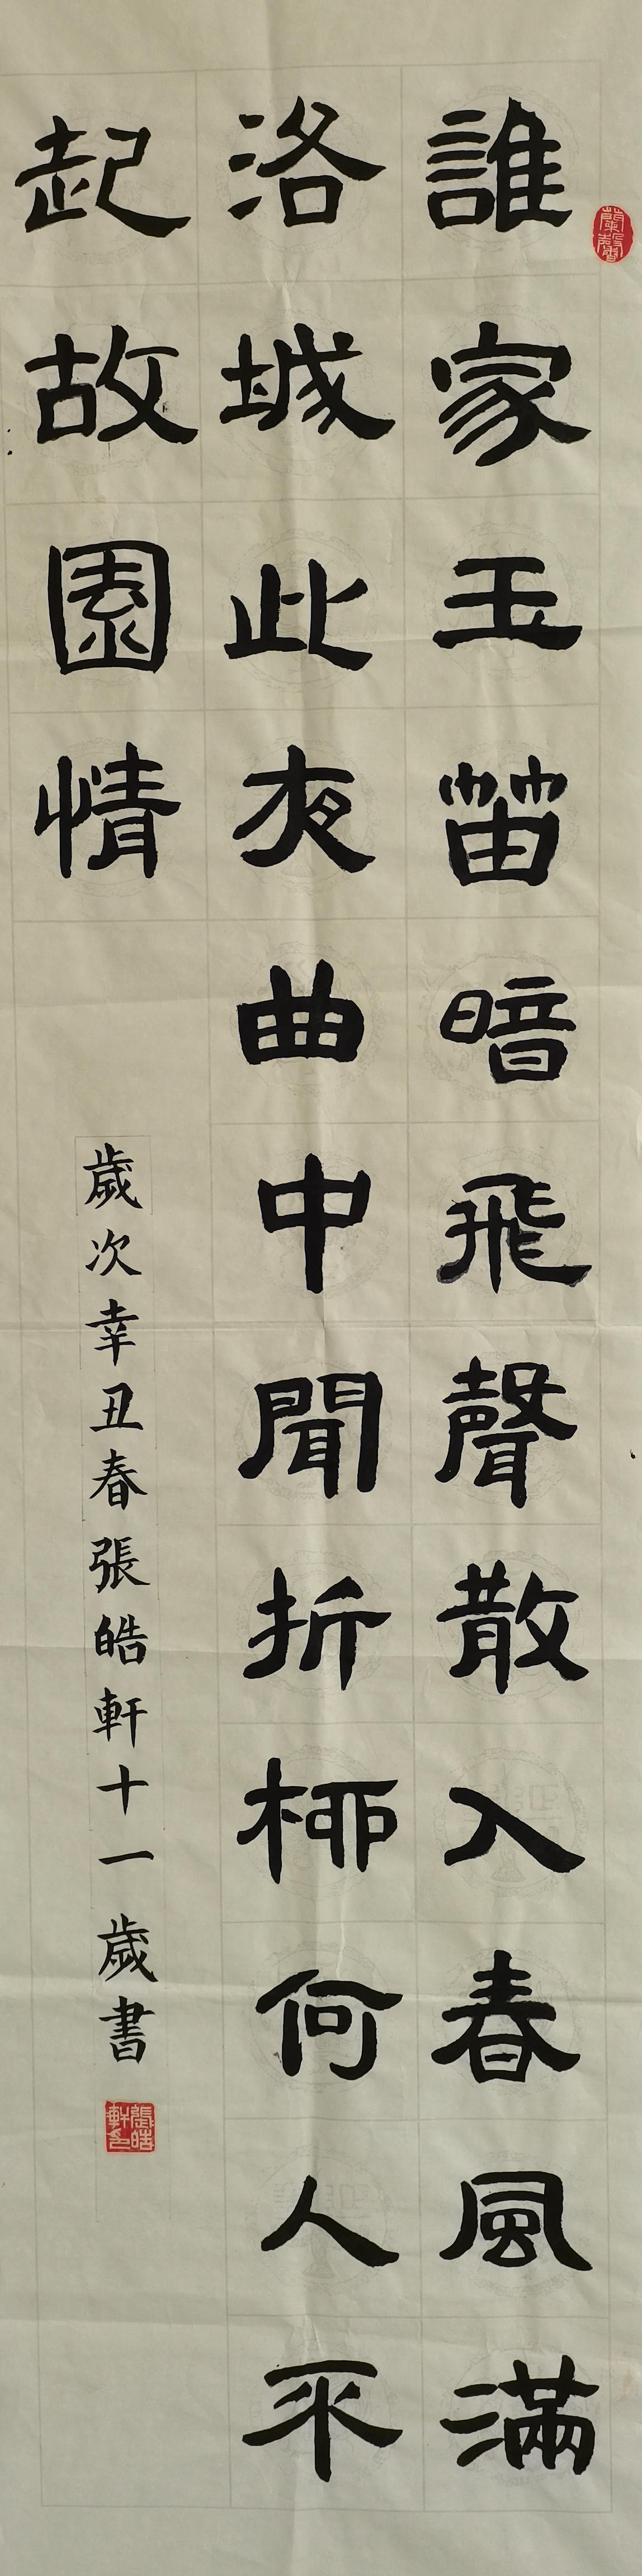 蘭馨
誰家玉笛暗飛聲散入春風滿
洛城此夜曲中聞折桺何人不
起故園情
歲次辛丑春張皓軒十一歲書
張皓軒印